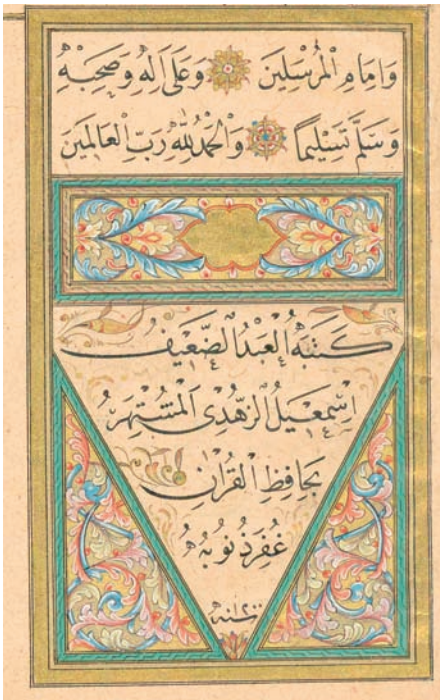 وَاِمَامِ الْمُرْسَلِينَ وَعَلَى اٰلِهِ وَصَحْبِهِ
وَسَلِّمْ تَسْلِيمًا وَالْحَمْدُ لِلّٰهِ رَبِّ الْعَالَمِينَ
كَتَبَهُ الْعَبْدُ الضَّعِيفُ
اِسْمٰعِيلُ الزُّهْدِى الْمُشْتَهِرُ
بِحَافِظِ الْقُرْاٰنِ
غُفِرَ ذُنُوبُهُ
سنه ١٢٠٠